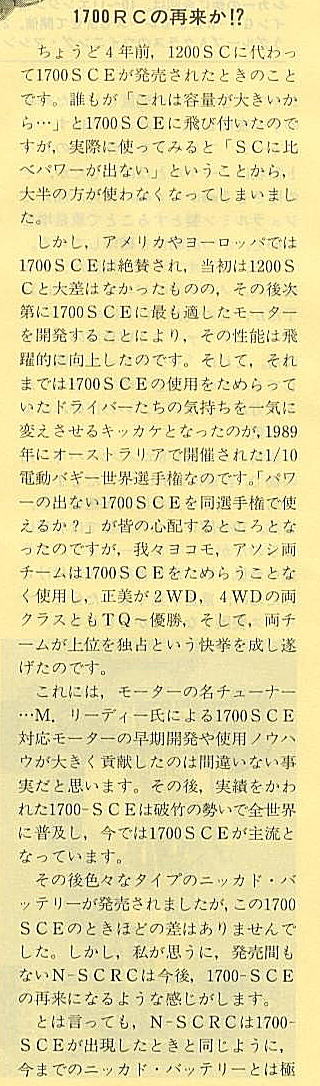 1700RCの再来か!?
ちょうど4年前，1200SCに代わっ
て1700SCEが発売されたときのこと
です。誰もが「これは容量が大きいか
ら…」と1700SCEに飛び付いたので
すが，実際に使ってみると「SCに比
べパワーが出ない」ということから，
大半の方が使わなくなってしまいまし
た。
しかし，アメリカやヨーロッパでは
1700SCEは絶賛され，当初は1200S
Cと大差はなかったものの，その後次
第に1700SCEに最も適したモーター
を開発することにより，その性能は飛
躍的に向上したのです。そして，それ
までは1700SCEの使用をためらって
いたドライバーたちの気持ちを一気に
変えさせるキッカケとなったのが，1989
年にオーストラリアで開催された1/10
電動バギー世界選手権なのです。「パワ
ーの出ない1700SCEを同選手権で使
えるか？」が皆の心配するところとな
ったのですが，我々ヨコモ，アソシ両
チームは1700SCEをためらうことな
く使用し，正美が2WD，4WDの両
クラスともTQ～優勝，そして，両チ
ームが上位を独占という快挙を成し遂
げたのです。
これには，モーターの名チューナー
…M．リーディー氏による1700SCE
対応モーターの早期開発や使用ノウハ
ウが大きく貢献したのは間違いない事
実だと思います。その後，実績をかわ
れた1700-SCEは破竹の勢いで全世界
に普及し，今では1700SCEが主流と
なっています。
その後色々なタイプのニッカド・バ
ッテリーが発売されましたが，この1700
SCEのときほどの差はありませんで
した。しかし，私が思うに，発売間も
ないN-SCRCは今後，1700-SCE
の再来になるような感じがします。
とは言っても，N-SCRCは1700-
SCEが出現したときと同じように，
今までのニッカド・バッテリーとは極